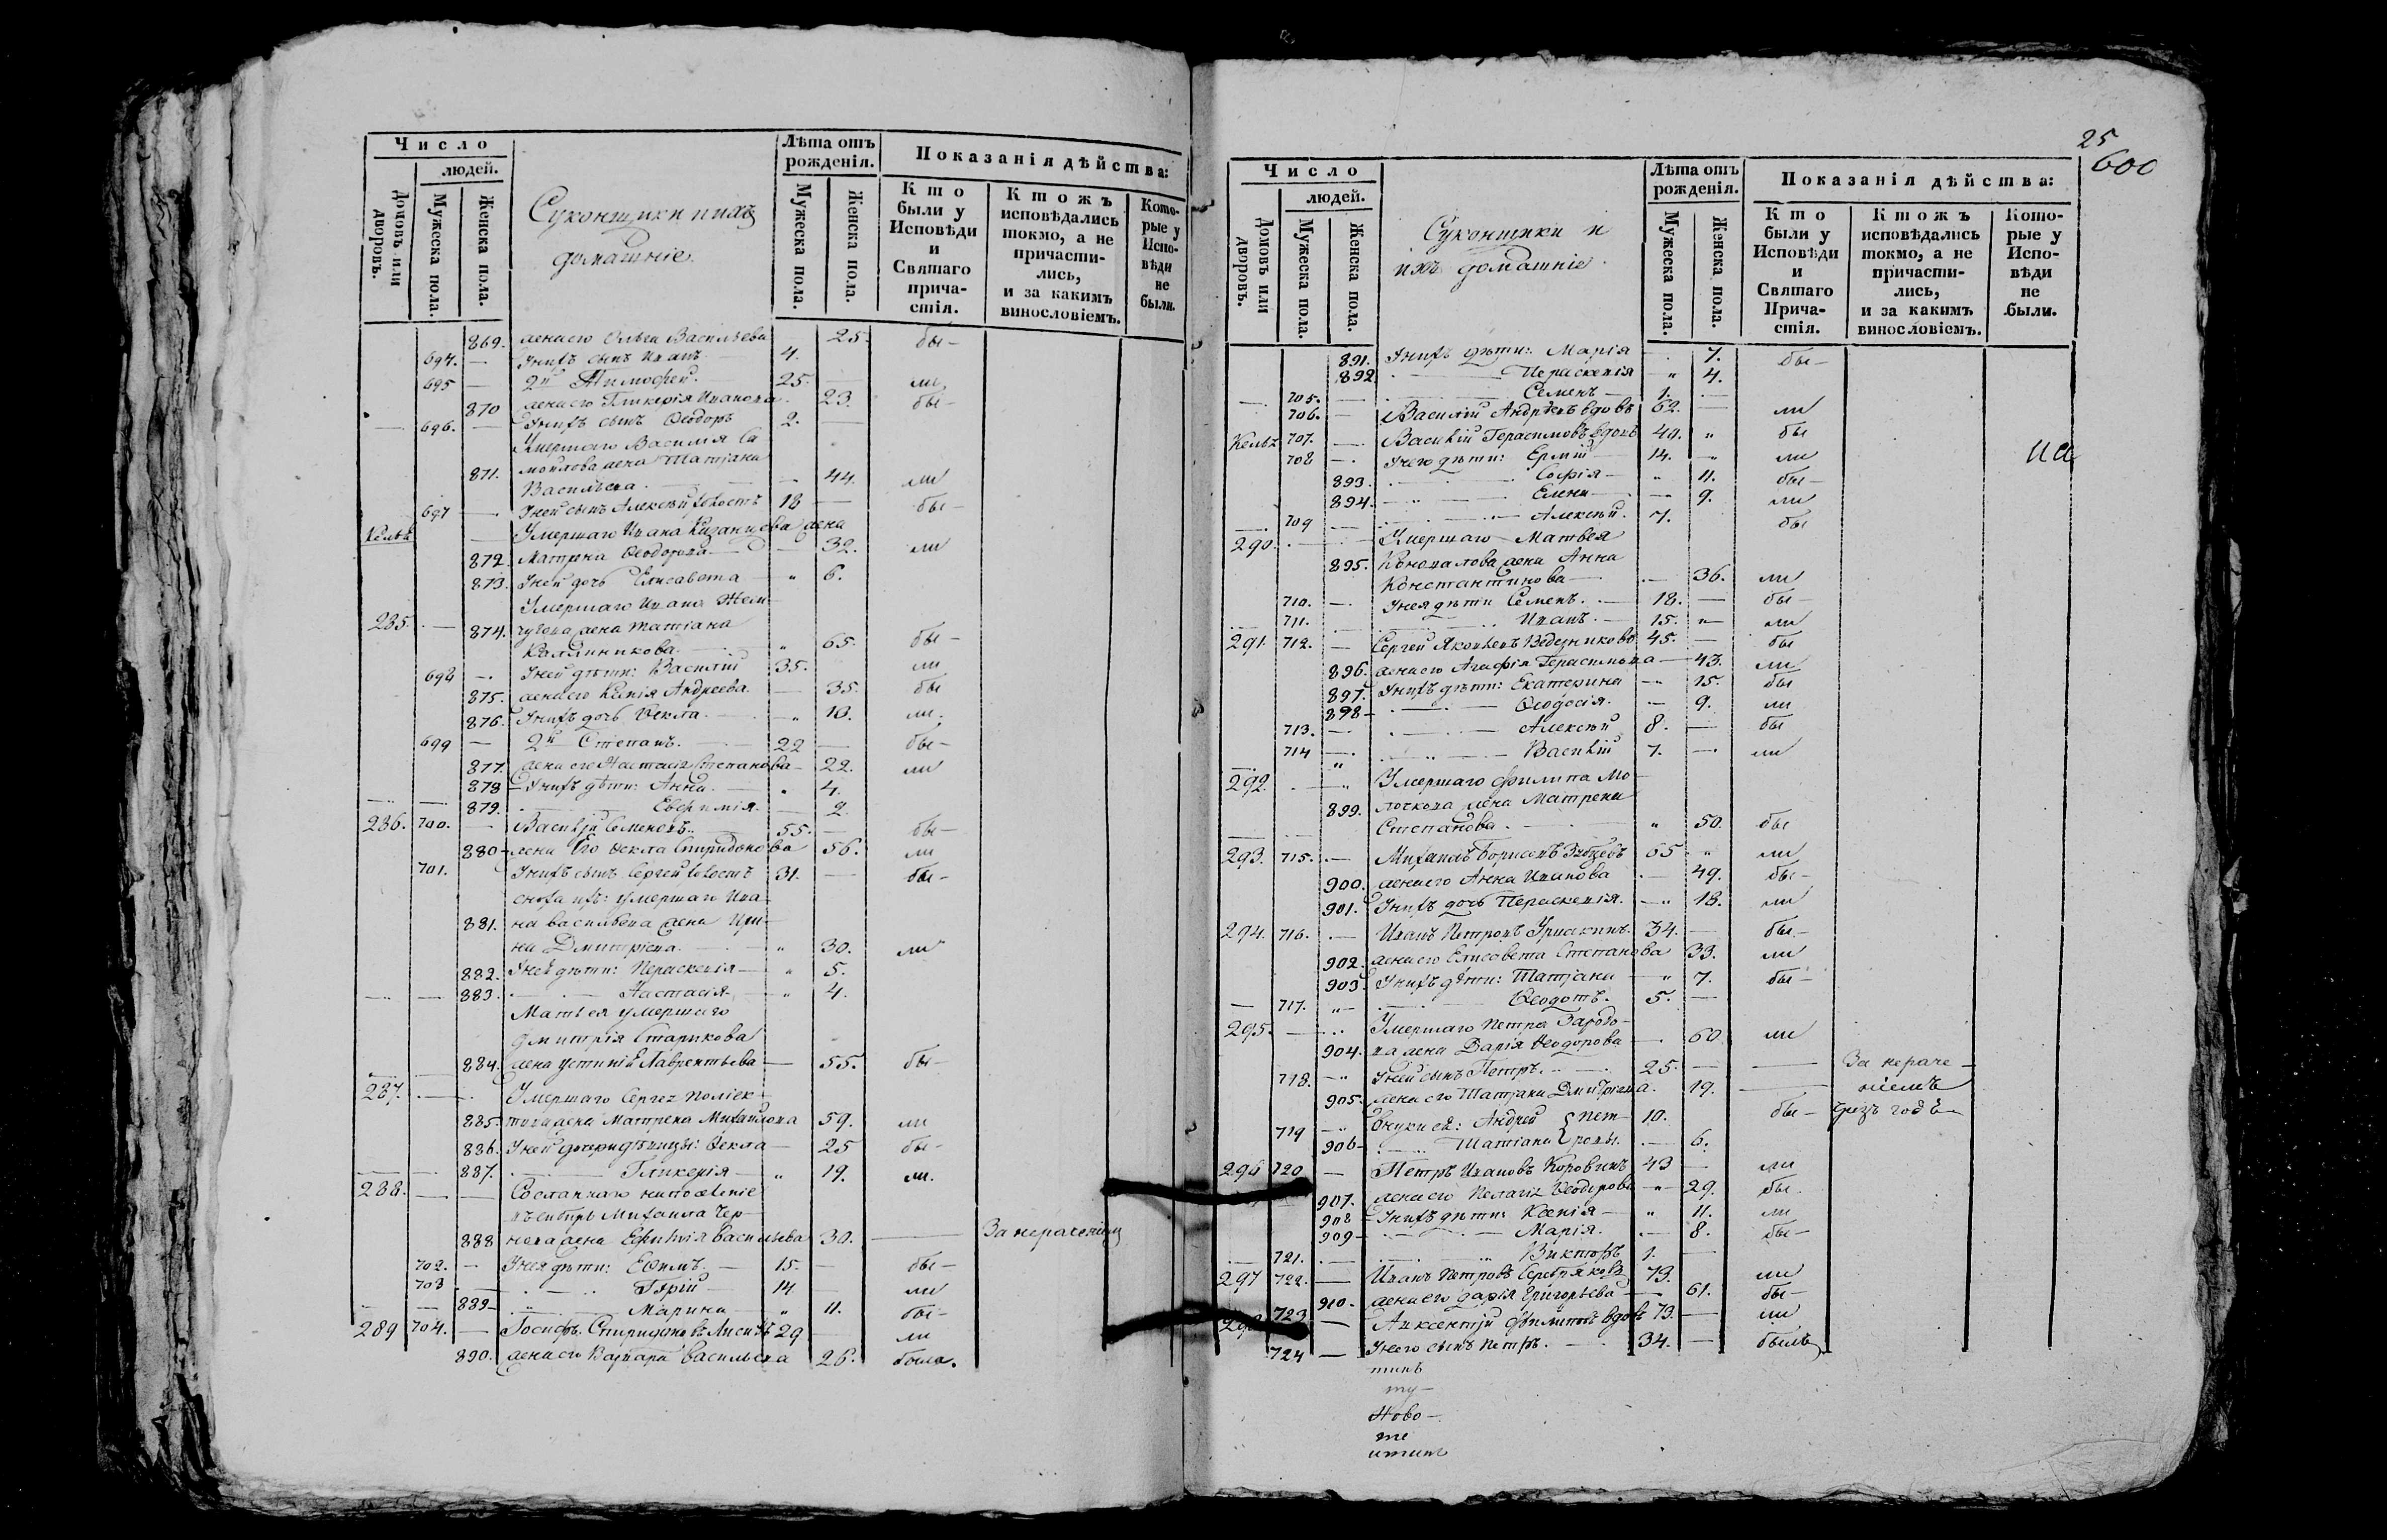 Число
людей.
Домовъ или дворовъ.
Мужеска пола.
Женска пола.
Суконщики и ихъ
домашніе.
Лѣта отъ рожденія.
Мужеска пола.
Женска пола.
Показанія дѣйства:
Кто были у Исповѣди и Святаго причастія.
Ктожъ исповѣдались токмо, а не причастились, и за какимъ винословіемъ.
Которые у Исповѣди не были.
869. жена его Ольга Васильева 25. бы-
694. — У нихъ сынъ Иванъ 4.
695 — 2й Тимофей. 25. — ли
870 жена его Гликерія Иванова. 23. бы-
696. — У нихъ сынъ Ѳеодоръ 2. —
Умершаго Василія Са
871. мойлова жена Татіана
Васильева. — 44. ли
697 — У ней сынъ Алексѣй холостъ 18 — бы-
Келья — Умершаго Ивана Казанцева жена
872. Матрена Ѳеодорова — 32. ли
873. У ней дочь Елисавета — " 6.
Умершаго Ивана Жем-
285. — 874. чугова жена Татіана
Каллиникова. " 65. бы-
698 — У ней дѣти: Василій 35. ли
875. жена его Ксенія Андреева. — 35. бы
876. У нихъ дочь Ѳекла. — " 10. ли
699 — 2й Степанъ. 22 — бы-
877. жена его Настасія Степанова — 22. ли
878 — У нихъ дѣти: Анна. " 4.
879. — Евфимія. — 2.
286. 700. — Василій Семеновъ. 55. — бы-
880 — жена Его Ѳекла Спиридонова 56. ли
701. У нихъ сынъ Сергей холостъ 31. — бы-
сноха ихъ: умершаго Ива-
881. на васильева жена Ири-
на Дмитріева. " 30. ли
882. У ней дѣти: Параскевія — " 5.
883. — Настасія — " 4.
умершаго
дмитрія Старикова
884. жена Устинія Лаврентьева — 55. бы-
287. — Умершаго Сергея
885. жена Матрена Михайлова 59. ли
886. У ней дочери дѣвицы: Ѳекла — 25 бы-
887. — Гликерія — " 19. ли.
288. — Сосланнаго на поселеніе
въ сибирь Михаила Чер-
888 нова жена Евфимія васильева 30. — За нераченіемъ
702. — У нея дѣти: Ефимъ. — 15. — бы-
703 — Гурій — 14 ли
889 — Марина — " 11. бы-
289 704. — Іосифъ Спиридоновъ 29 — ли
890. жена его Варвара васильева 26. была.
25
600
Число
людей.
Домовъ или дворовъ.
Мужеска пола.
Женска пола.
Суконщики и
ихъ домашніе.
Лѣта отъ рожденія.
Мужеска пола.
Женска пола.
Показанія дѣйства:
Кто были у Исповѣди и Святаго Причастія.
Ктожъ исповѣдались токмо, а не причастились, и за какимъ винословіемъ.
Которые у Исповѣди не были.
891. У нихъ дѣти: Марія — 7. бы-
892. — Параскевія — " 4.
705. — Семенъ — 1. —
706. — Василій Андреевъ вдовъ 62. — ли
Келья 707. — Василій Герасимовъ вдовъ 40. " бы
708 — У него дѣти: Ермій — 14. — ли
893. — Софія — " 11. бы-
894. — Елена — 9. ли
709 — Алексѣй. 7. бы
290. — Умершаго Матвея
895. Коновалова жена Анна
Константинова — 36. ли
710. — У нея дѣти Семенъ. — 18. — бы-
711. — Иванъ. — 15. " ли
291. 712. — Сергей Яковлевъ 45. — бы
896. жена его Агафія Герасимова — 43. ли
897. У нихъ дѣти: Екатерина — 15. бы
898 — Ѳеодосія. — 9. ли
713. — Алексѣй 8. — бы
714 — Василій 7. — ли
292. — Умершаго Филипа Мо-
899. лочкова жена Матрена
Степанова. — " 50. бы
293. 715. — Михаилъ Борисовъ Зубцевъ 65 " ли
900. жена его Анна Иванова — 49. бы-
901. У нихъ дочь Параскевія. — " 18. ли
294. 716. — Иванъ Петровъ 34. — бы-
902. жена его Елисавета Степанова 33. ли
903. У нихъ дѣти: Татіана — " 7. бы-
717. — Ѳеодотъ. 5. —
295. — Умершаго Петра
904. жена Дарія Ѳеодорова — 60 ли
718. — У ней сынъ Петръ. 25. — — За нераче-
905. жена его Татіана Дмитріева. 19. — ніемъ
719 — внуки ея: Андрей } Пет- 10. бы- чрезъ годъ
906 — Татіана } ровы. — 6.
296 720 — Петръ Ивановъ Коровинъ 43 — ли
907. жена его Пелагія Ѳеодорова — 29. бы.
908 — У нихъ дѣти: Ксенія — " 11. ли
909 — Марія. — 8. бы-
721. — Викторъ 1. —
297 722. — Иванъ Петровъ Серебряковъ 73. ли
910. жена его Дарія Григорьева — 61. бы-
298 723 — Авксентій Филиповъ вдовъ 73. — ли
724 — У него сынъ Петръ. — 34. — былъ